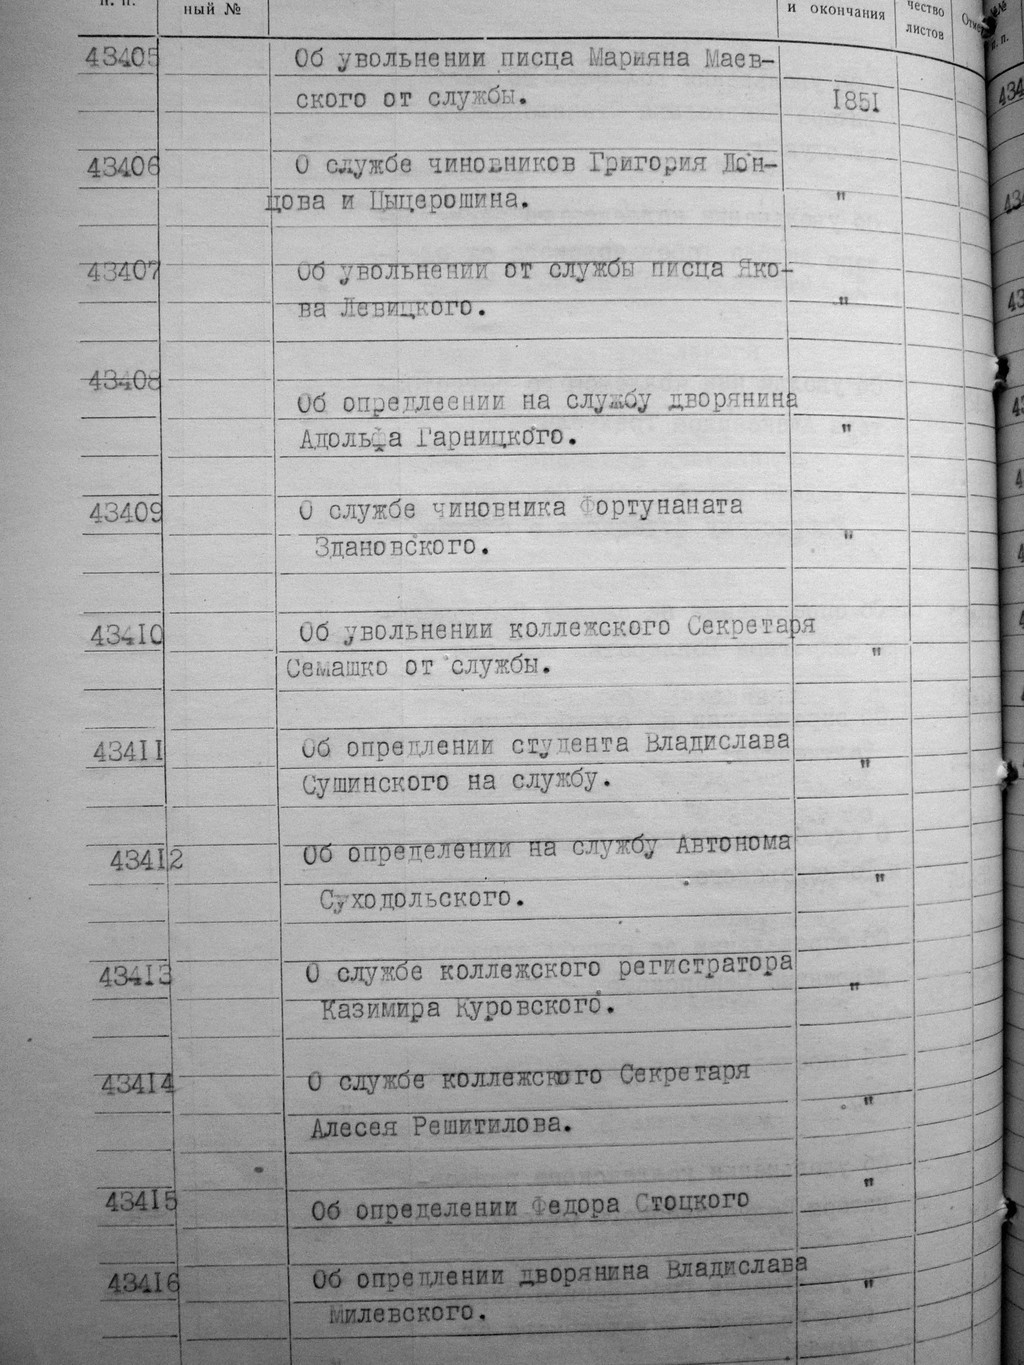 п. п.
ный №
и окончания
чество
листов
43405 Об увольнении писца Марияна Маев-
ского от службы. 1851
43406 О службе чиновников Григория Дон-
цова и Цыцерошина. "
43407 Об увольнении от службы писца Яко-
ва Левицкого. "
43408
Об опредлеении на службу дворянина
Адольфа Гарницкого. "
43409 О службе чиновника Фортунаната
Здановского. "
43410 Об увольнении коллежского Секретаря
Семашко от службы. "
43411 Об опредлении студента Владислава
Сушинского на службу. "
43412 Об определении на службу Автонома
Суходольского. "
43413 О службе коллежского регистратора
Казимира Куровского. "
43414 О службе коллежского Секретаря
Алесея Решитилова. "
43415 Об определении Федора Стоцкого "
43416 Об опредлении дворянина Владислава
Милевского. "